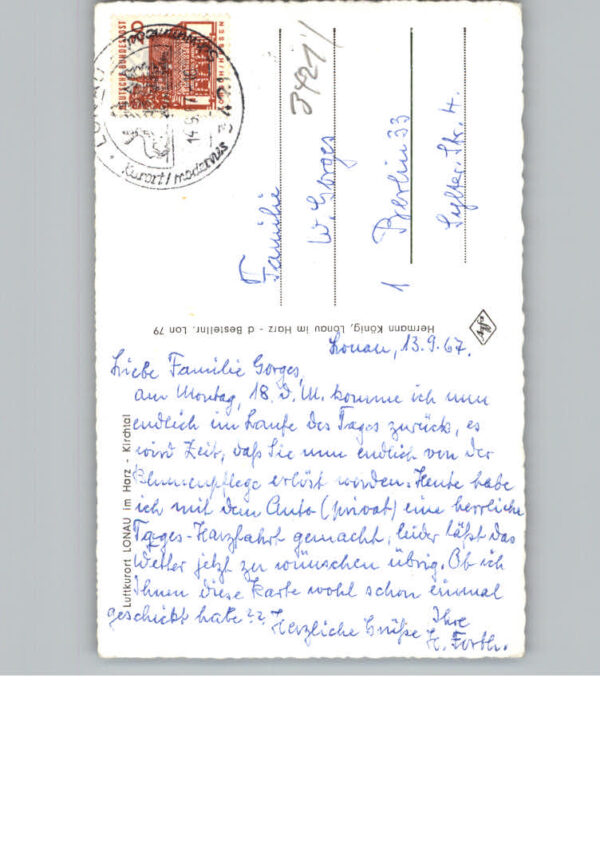 DEUTSCHE BUNDESPOST
LORSCH/HESSEN
LONAU
14.9.
Kurort/modernes
3421
Familie
W. Gorges
1 Berlin 33
Sylter. Str. 4.
Hermann König, Lonau im Harz - d Bestellnr. Lon 79
Luftkurort LONAU im Harz - Kirchtal
Lonau, 13.9.67.
Liebe Familie Gorges,
am Montag, 18. d. M. komme ich nun
endlich im Laufe des Tages zurück, es
wird Zeit, daß Sie nun endlich von der
Blumenpflege erlöst werden. Heute habe
ich mit dem Auto (privat) eine herrliche
Tages-Harzfahrt gemacht, leider läßt das
Wetter jetzt zu wünschen übrig. Ob ich
Ihnen diese Karte wohl schon einmal
geschickt habe?? Herzliche Grüße Ihre
H. Forth.